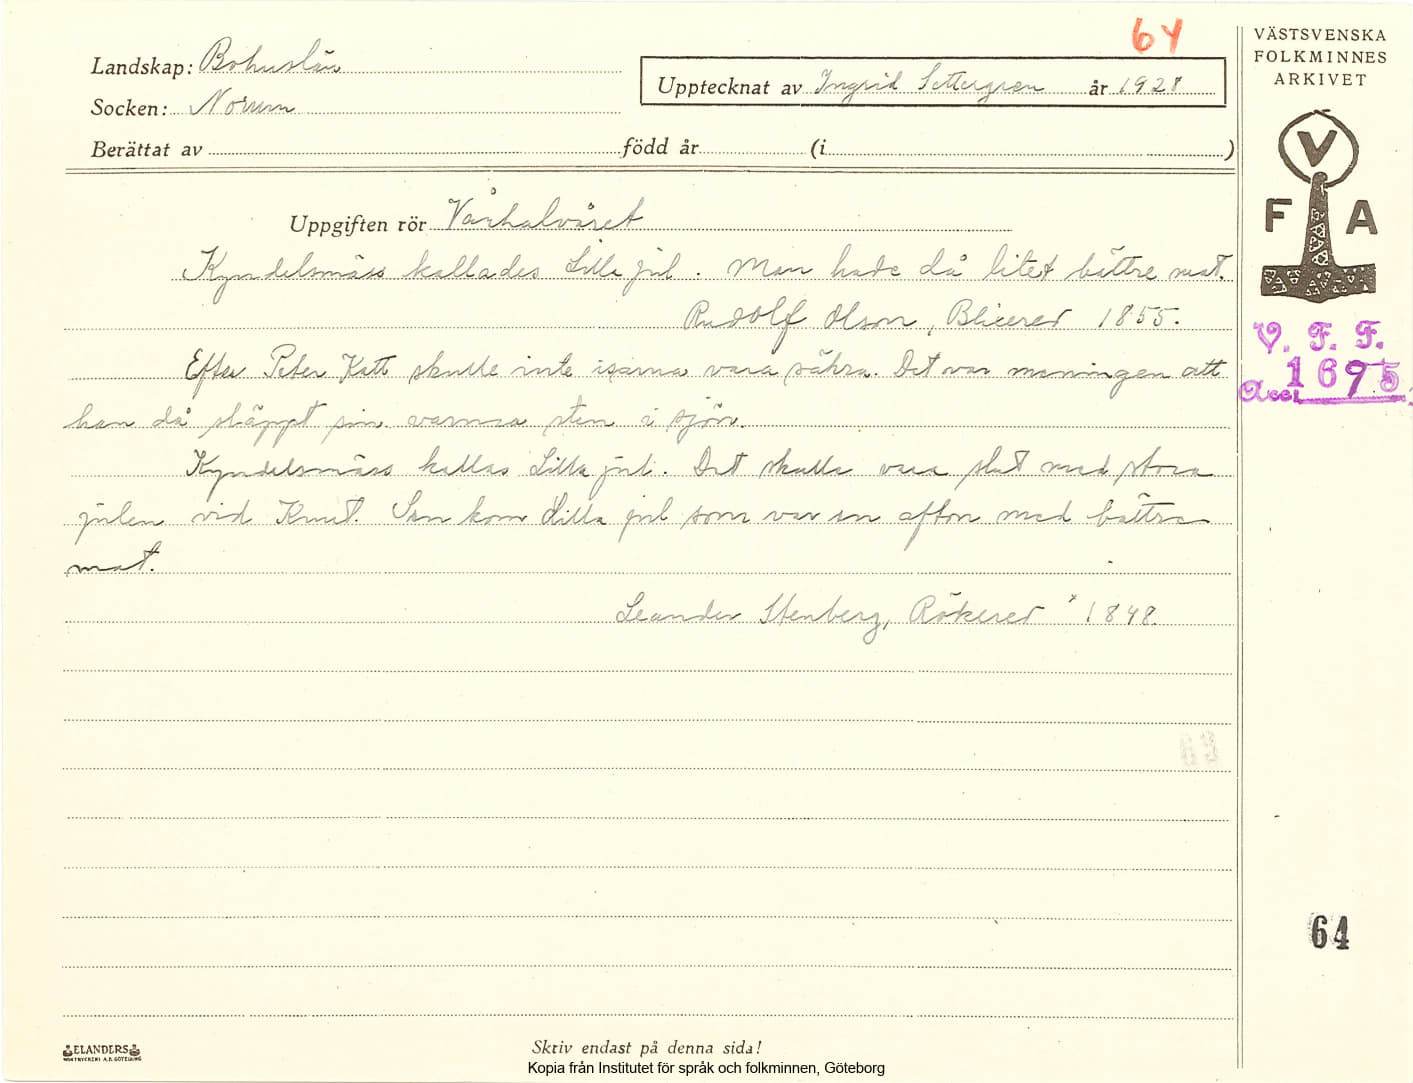 64
VÄSTSVENSKA
FOLKMINNES
ARKIVET
Landskap: Bohuslän
Upptecknat av Ingrid Settergren år 1928
Socken: Norum
Berättat av född år (i )
V
F A
Uppgiften rör Vårhalvåret
Kyndelsmäss kallades Lilla jul. Man hade då litet bättre mat.
Rudolf Olson, 1855.
V. F. F.
Acc. 1695
Efter Peter Katt skulle inte isarna vara säkra. Det var meningen att
han då släppt sin varma sten i sjön.
Kyndelsmäss kallas Lilla jul. Det skulle vara slut med stora
julen vid Knut. Sen kom Lilla jul som var en afton med bättre
mat.
Leander Stenberg, Rökered * 1848.
63
64
ELANDERS
Skriv endast på denna sida!
Kopia från Institutet för språk och folkminnen, Göteborg